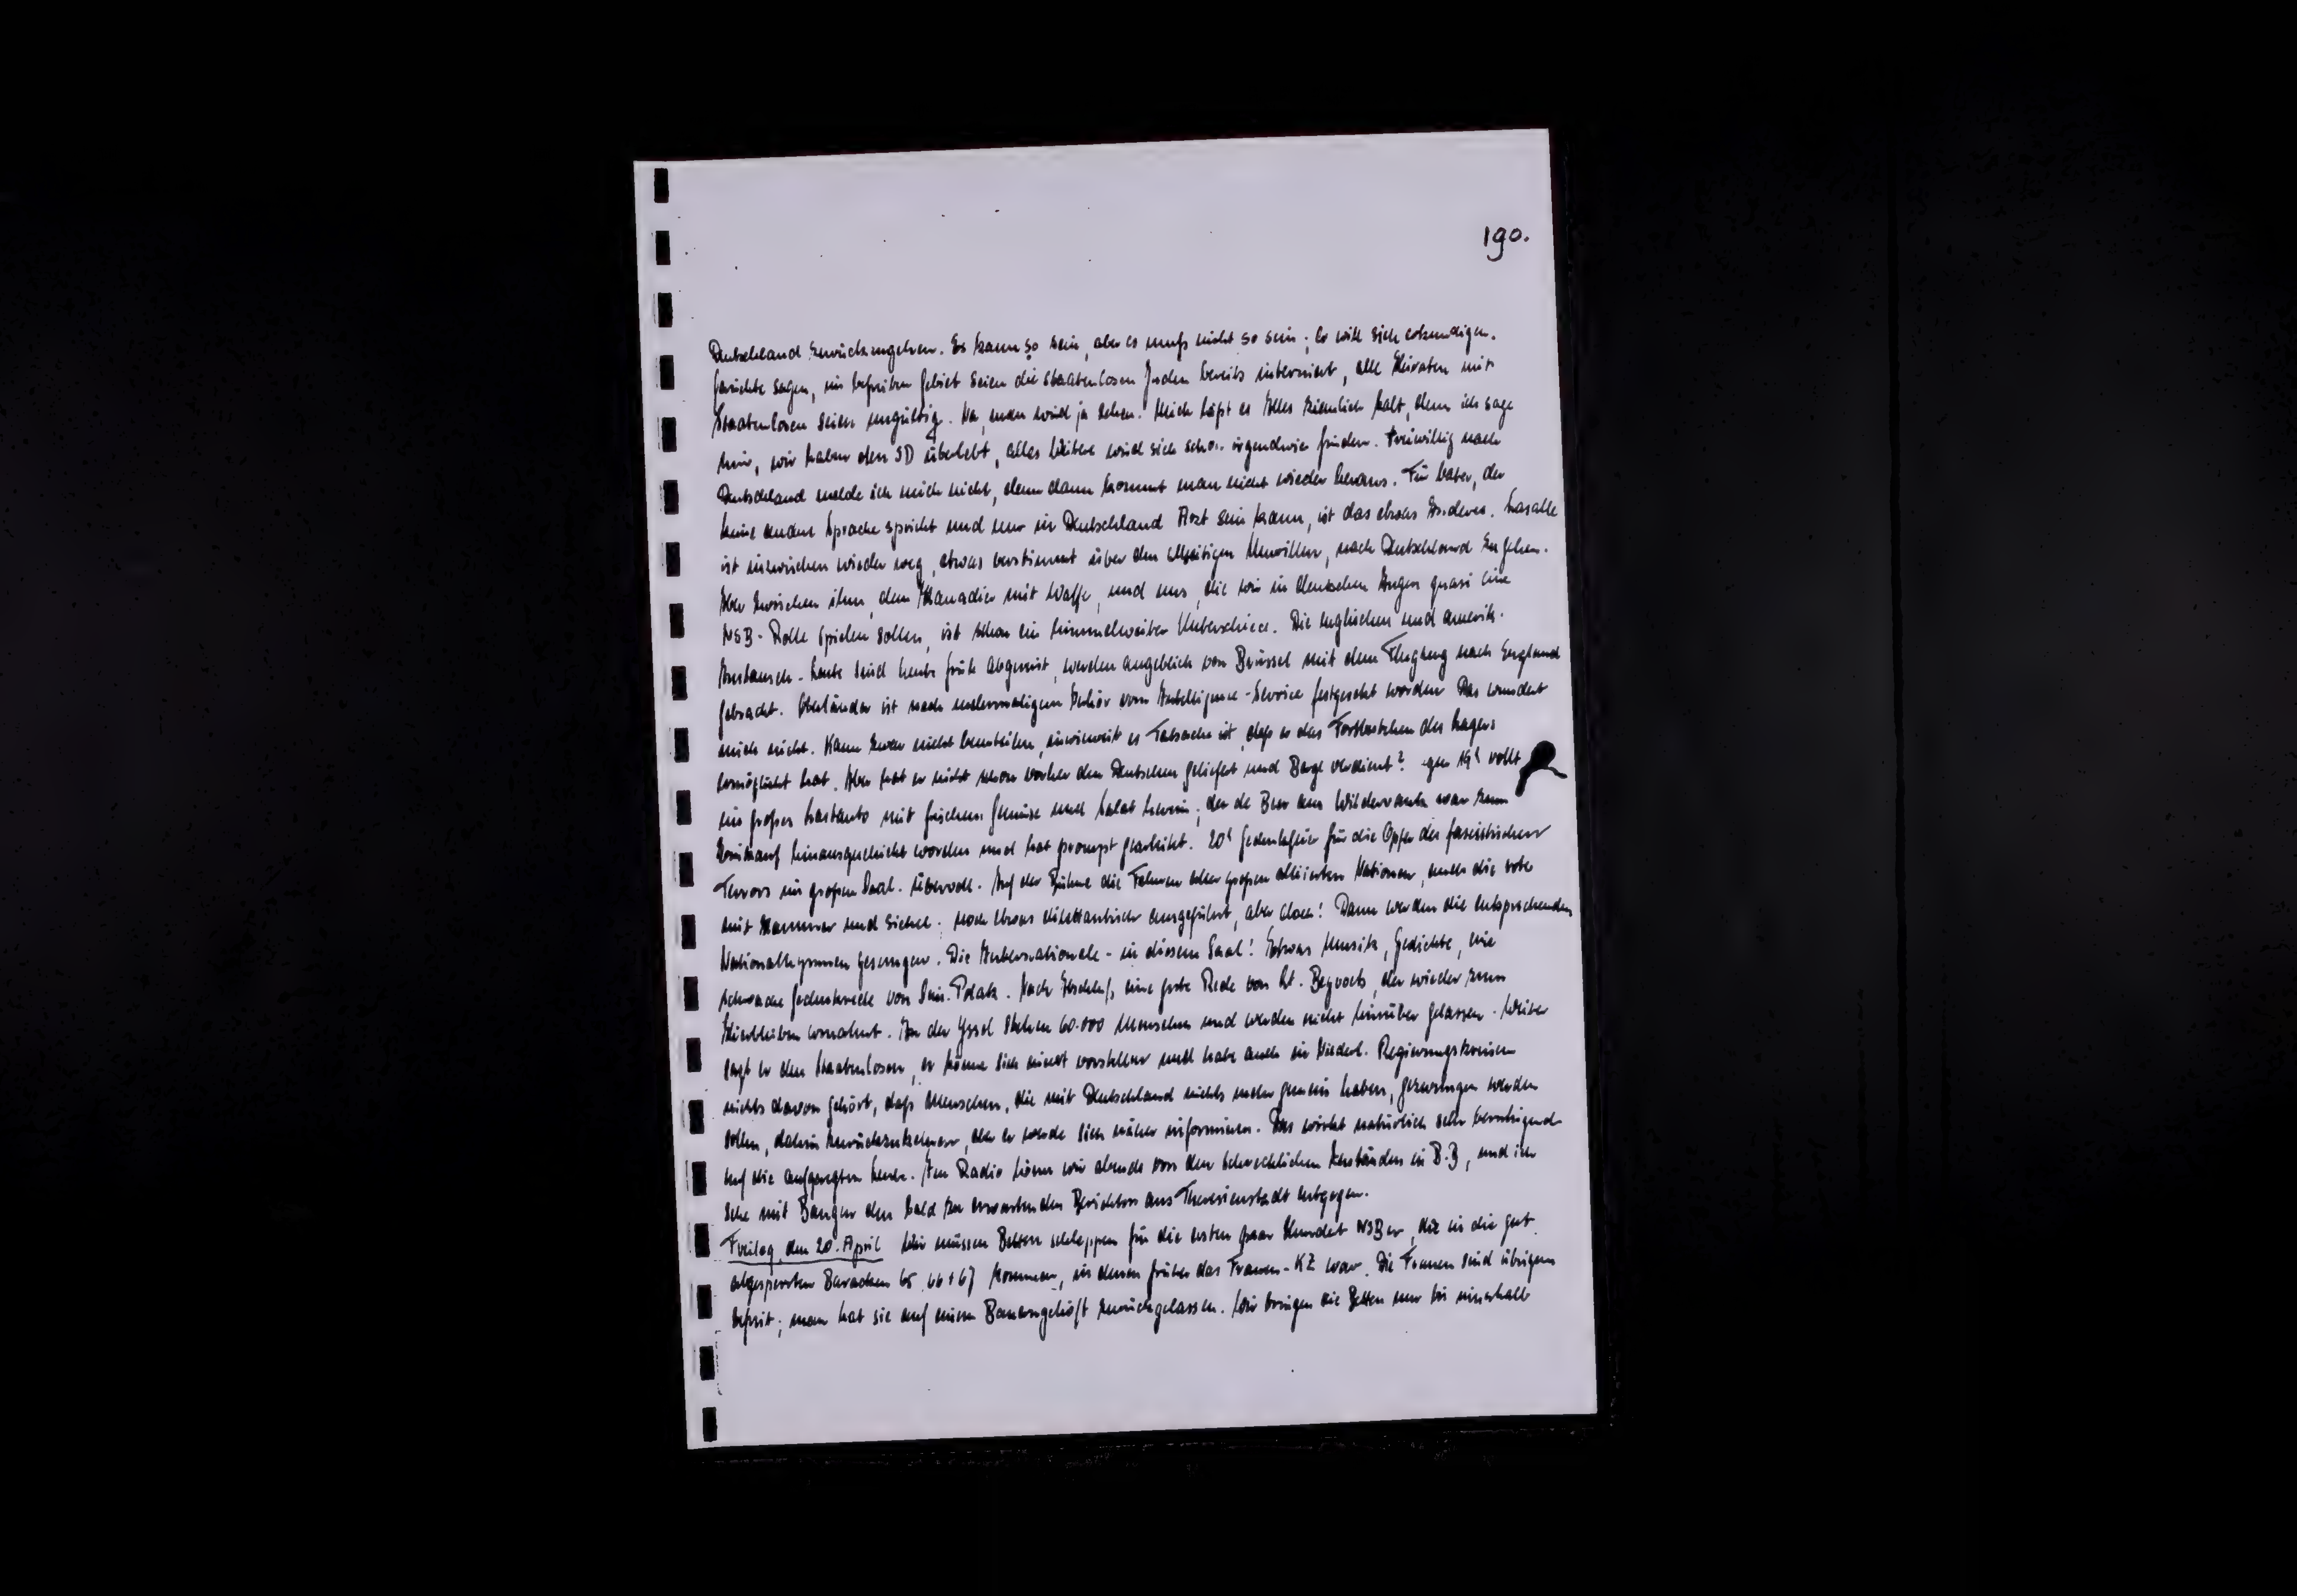 190.
Deutschland zurückzugehen. Es kann so sein, aber es muß nicht so sein; Er will sich erkundigen.
Gerüchte sagen, im befreiten Gebiet seien die staatenlosen Juden bereits interniert, alle Heiraten mit
Staatenlosen seien ungültig. Na, man wird ja sehen. Mich läßt es Alles ziemlich kalt, denn ich sage
mir, wir haben den SD überlebt, alles Weitere wird sich schon irgendwie finden. Freiwillig nach
Deutschland melde ich mich nicht, denn dann kommt man nicht wieder heraus. Für Vater, der
keine andere Sprache spricht und nur in Deutschland Arzt sein kann, ist das etwas Anderes. Lasalle
ist inzwischen wieder weg, etwas verstimmt über den allseitigen Unwillen, nach Deutschland zu gehen.
Aber zwischen ihm, dem Kanadier mit Waffe, und uns, die wir in deutschen Augen quasi eine
NSB-Rolle spielen sollen, ist schon ein himmelweiter Unterschied. Die englischen und amerik.
Austausch-Leute sind heute früh abgereist, werden angeblich von Brüssel mit dem Flugzeug nach England
gebracht. Oberländer ist nach mehrmaligem Verhör vom Intelligence-Service festgesetzt worden. Das wundert
mich nicht. Kann zwar nicht beurteilen, inwieweit es Tatsache ist, daß er das Fortbestehen des Lagers
ermöglicht hat. Aber hat er nicht schon vorher den Deutschen geliefert und Berge verdient? gegen 19h rollt
ein großes Lastauto mit frischem Gemüse und Salat herein; der de Beer aus Wildervank war zum
Einkauf hinausgeschickt worden und hat prompt gearbeitet. 20h Gedenkfeier für die Opfer des fascistischen
Terrors im großen Saal. Übervoll. Auf der Bühne die Fahnen aller großen alliierten Nationen, auch die rote
mit Hammer und Sichel. noch etwas dilettantisch ausgeführt, aber doch! Dann werden die entsprechenden
Nationalhymnen gesungen. Die Internationale - in diesem Saal! Etwas Musik, Gedichte, eine
schwache Gedenkrede von Polak. Nach Abschluß eine gute Rede von Lt. der wieder zum
Hierbleiben ermahnt. An der Yssel stehen 60.000 Menschen und werden nicht hinüber gelassen. Weiter
sagt er den Staatenlosen, er könne sich nicht vorstellen und habe auch in Niederl. Regierungskreisen
nichts davon gehört, daß Menschen, die mit Deutschland nichts mehr gemein haben, gezwungen werden
sollen, dahin zurückzukehren, aber er werde sich näher informieren. Das wirkt natürlich sehr beruhigend
auf die aufgeregten Leute. Am Radio hören wir abends von den schrecklichen Zuständen in B.B, und ich
sehe mit Bangen den bald zu erwartenden Berichten aus Theresienstadt entgegen.
Freitag, den 20. April Wir müssen Betten schleppen für die ersten paar Hundert NSBer, die in die gut
abgesperrten Baracken 65, 66 + 67 kommen, in denen früher das Frauen-KZ war. Die Frauen sind übrigens
befreit; man hat sie auf einem Bauerngehöft zurückgelassen. Wir bringen die Betten nur bis innerhalb